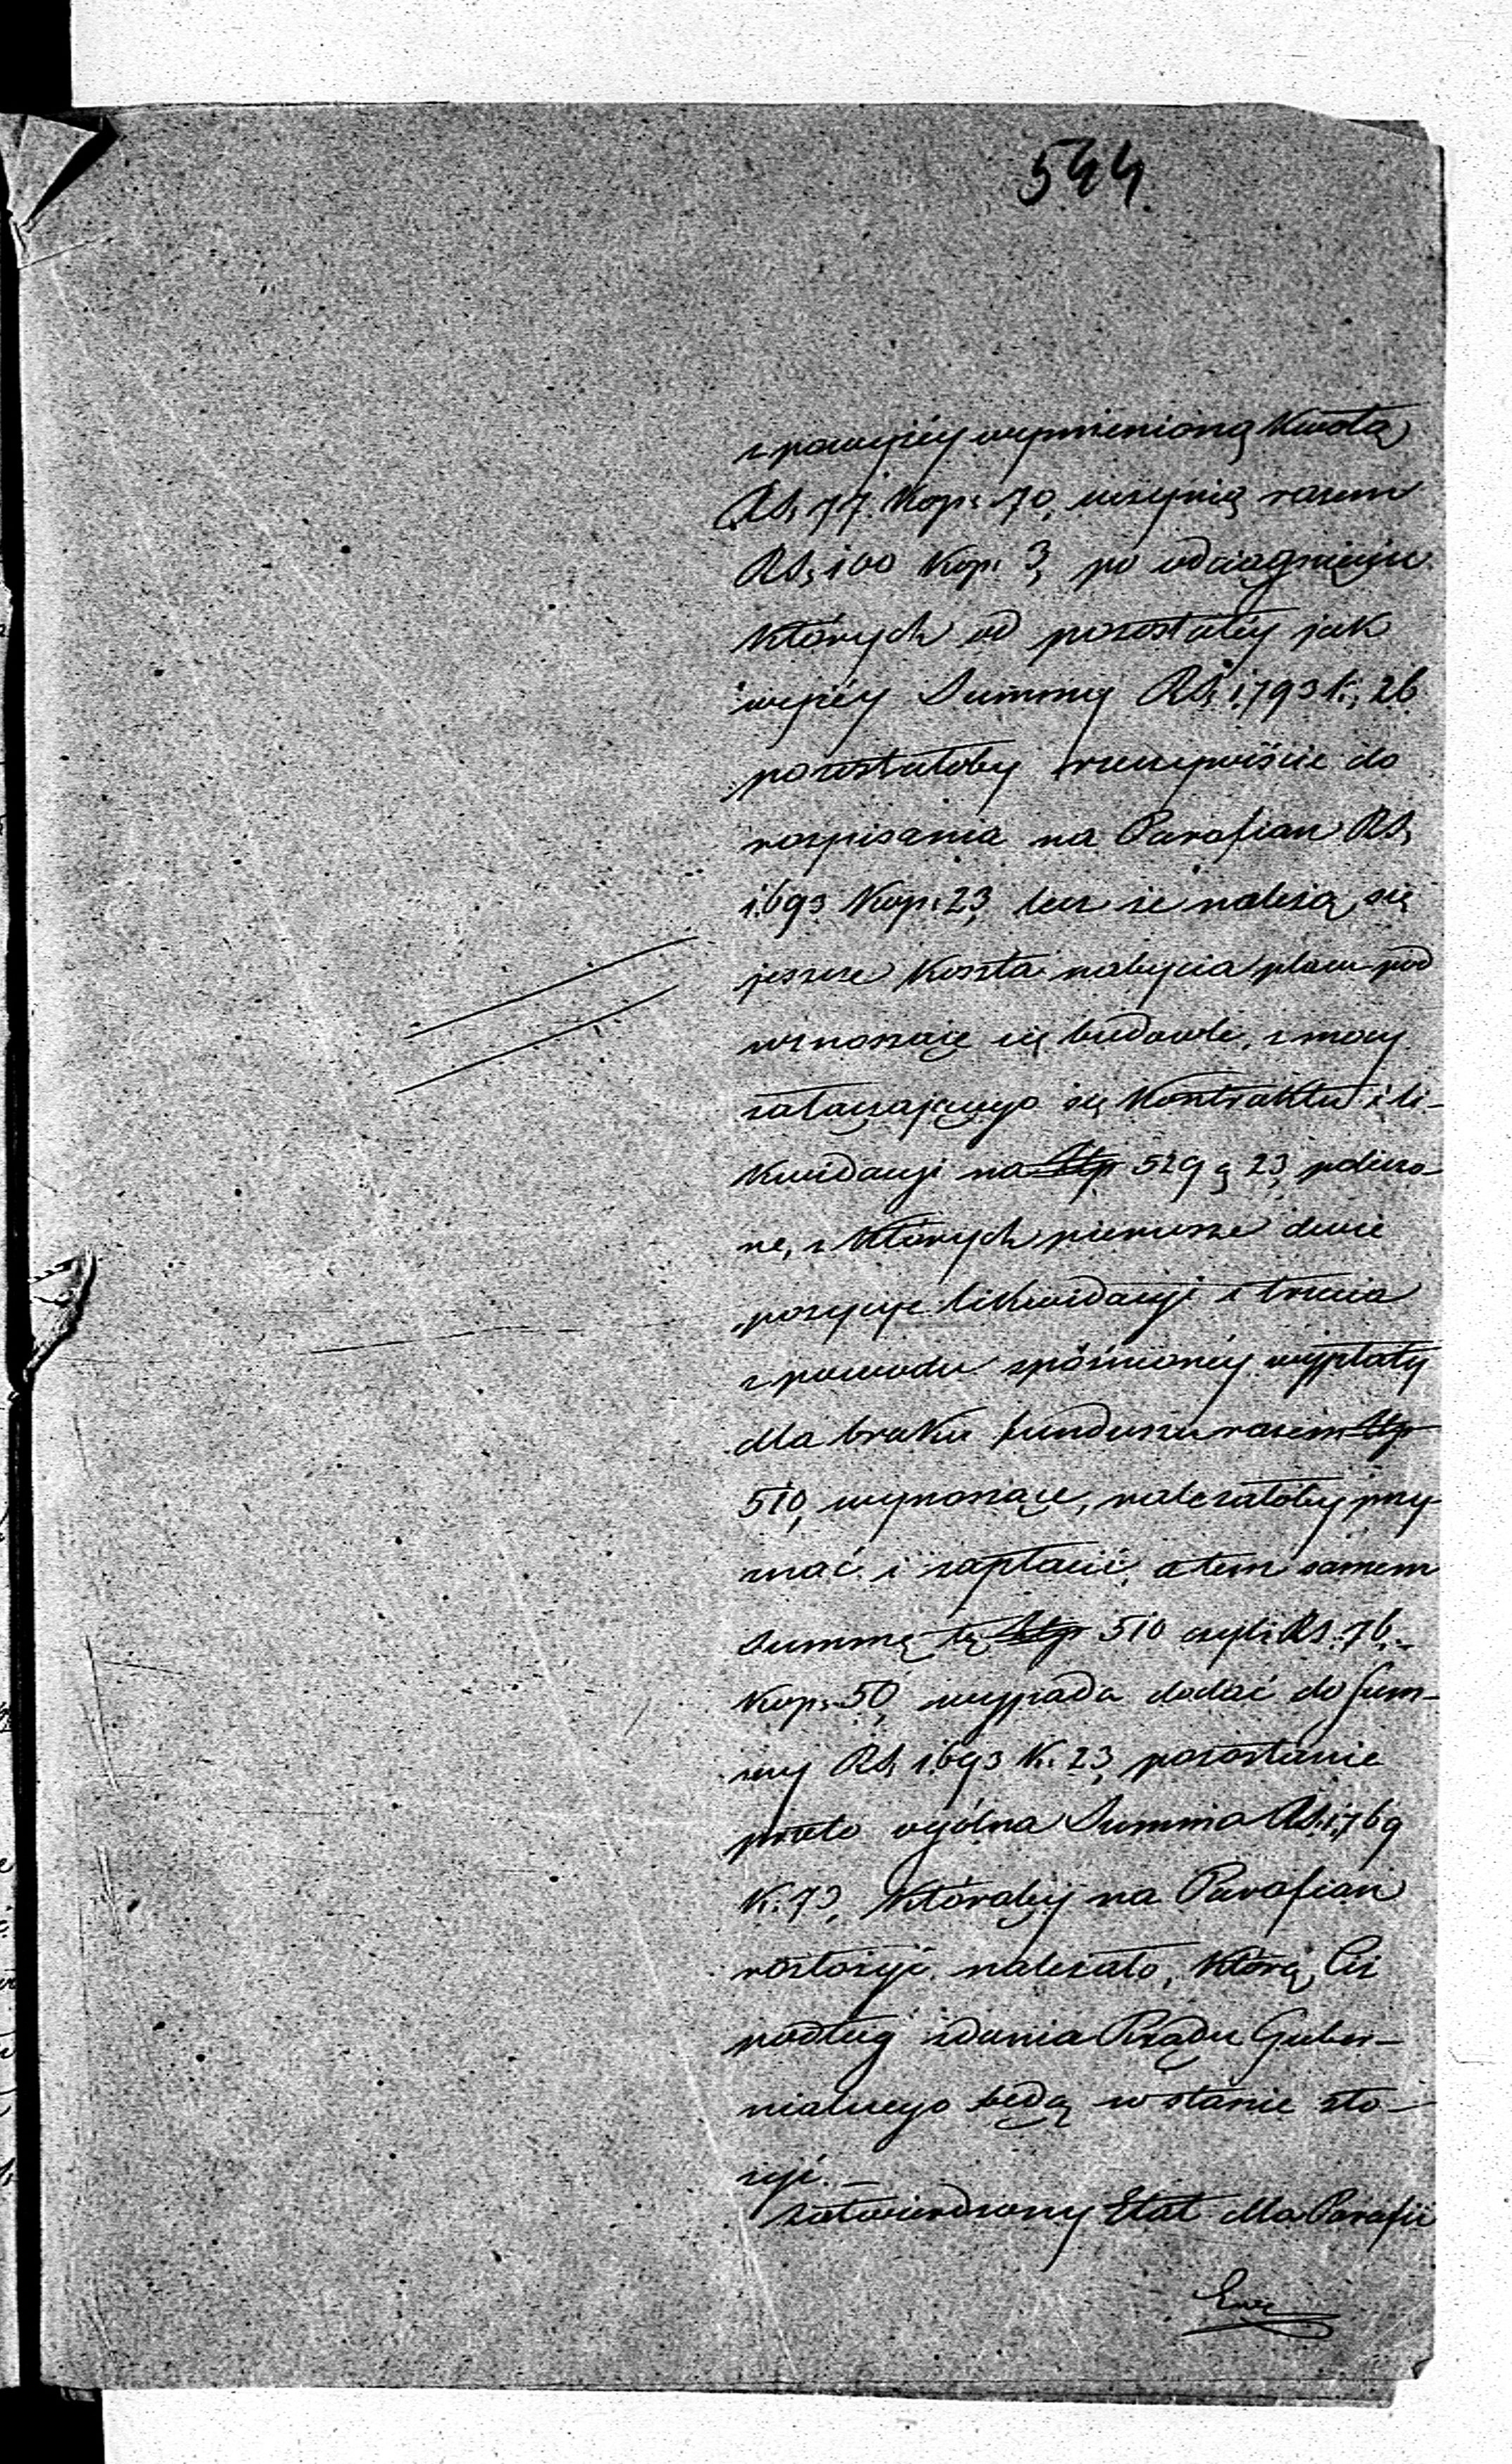 544.
z powyżéy wymienioną Kwotą
RS. 77. Kop: 70, uczynią razem
RS, 100 Kop: 3, po odciągnięciu
których od pozostałéy jak
wyżéy Summy RS, 1,793 k; 26
pozostałoby rzeczywiście do
rozpisania na Parafian RS,
1,693 Kop: 23, lecz że należą się
jeszcze Koszta nabycia placu pod
wznoszące się budowle, z mocy
załączającego się Kontraktu i li-
kwidacyi na Złp 529 g 23, policzo-
ne, z których pierwsze dwie
pozycye likwidacyi i trzecia
z powodu spóźnionéy wypłaty
dla braku funduszu razem Złp
510, wynoszące, należałoby przy-
znać i zapłacić, a tem samem
Summę tę Złp 510 czyli RS. 76,-
Kop: 50, wypada dodać do Sum-
my RS, 1,693 K. 23, pozostanie
przeto ogólna Summa RS. 1,769
K. 73, któraby na Parafian
rozłożyć należało, którą Ciż
podług zdania Rządu Guber-
nialnego będą w stanie zło-
żyć. –
Zatwierdzony Etat dla Parafii